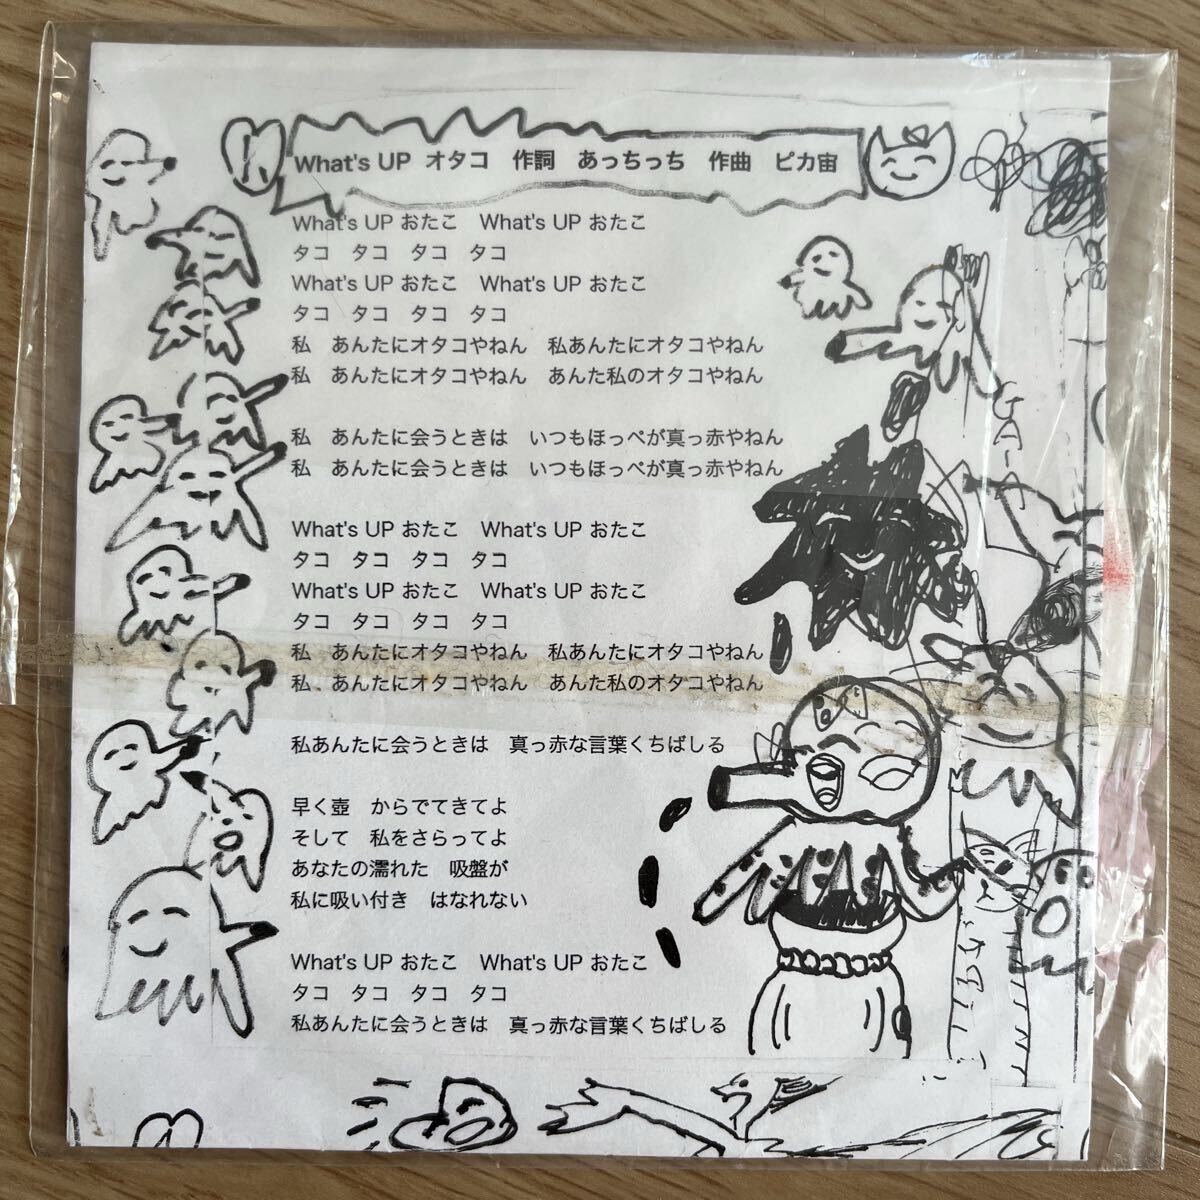 What's UP　オタコ　作詞　あっちっち　作曲　ピカ宙
What's UP おたこ　What's UP おたこ
タコ　タコ　タコ　タコ
What's UP おたこ　What's UP おたこ
タコ　タコ　タコ　タコ
私　あんたにオタコやねん　私あんたにオタコやねん
私　あんたにオタコやねん　あんた私のオタコやねん
私　あんたに会うときは　いつもほっぺが真っ赤やねん
私　あんたに会うときは　いつもほっぺが真っ赤やねん
What's UP おたこ　What's UP おたこ
タコ　タコ　タコ　タコ
What's UP おたこ　What's UP おたこ
タコ　タコ　タコ　タコ
私　あんたにオタコやねん　私あんたにオタコやねん
私　あんたにオタコやねん　あんた私のオタコやねん
私あんたに会うときは　真っ赤な言葉くちばしる
早く壺　からでてきてよ
そして　私をさらってよ
あなたの濡れた　吸盤が
私に吸い付き　はなれない
What's UP おたこ　What's UP おたこ
タコ　タコ　タコ　タコ
私あんたに会うときは　真っ赤な言葉くちばしる